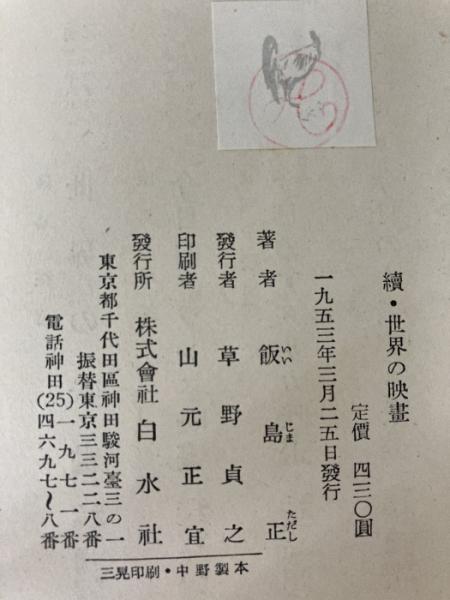 續・世界の映畫
定價 四三〇圓
一九五三年三月二五日發行
著者 飯島正
いいじまただし
發行者 草野貞之
印刷者 山元正宜
發行所 株式會社 白水社
東京都千代田區神田駿河臺三の一
振替東京三三二二八番
電話神田(25)一九七一番
四六九七～八番
三晃印刷・中野製本